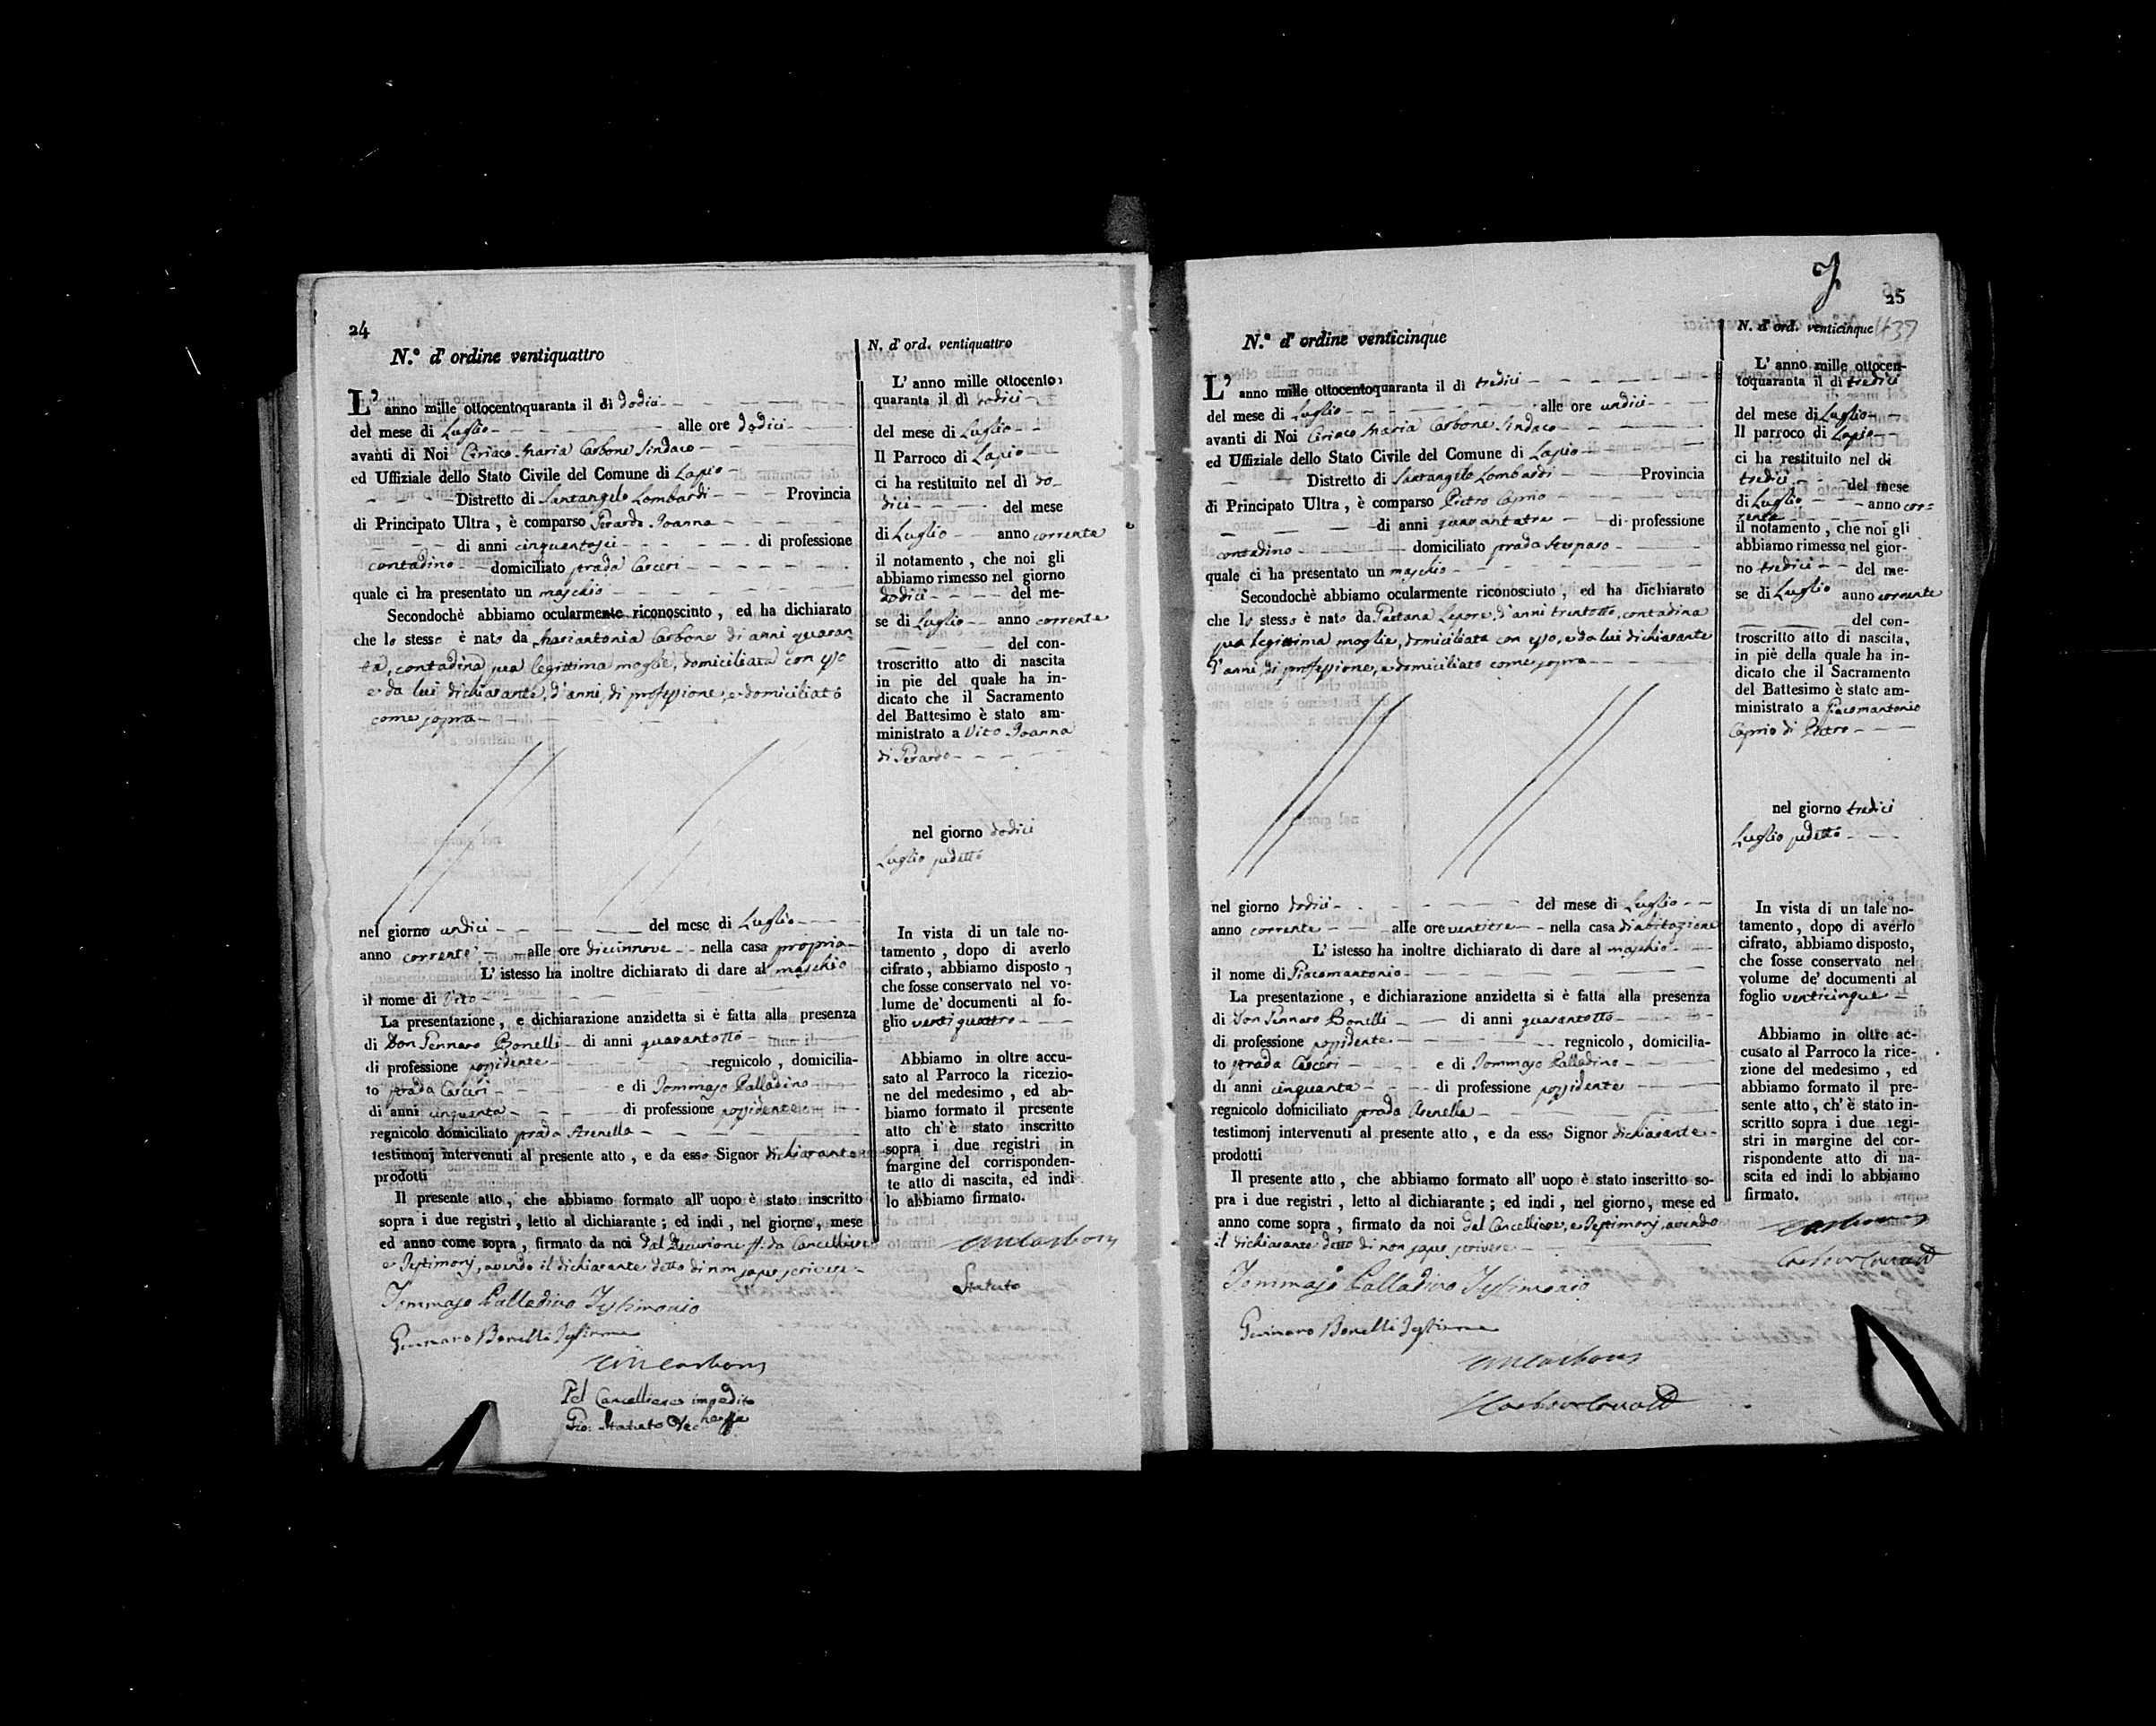 24
N.° d' ordine ventiquattro
L' anno mille ottocentoquaranta il dì dodici
del mese di Luglio alle ore dodici
avanti di Noi Ciriaco Maria Carbone Sindaco
ed Uffiziale dello Stato Civile del Comune di Lapio
Distretto di Santangelo Lombardi Provincia
di Principato Ultra, è comparso Gerardo Ioanna
di anni cinquantasei di professione
contadino domiciliato strada Casceri
quale ci ha presentato un maschio
Secondochè abbiamo ocularmente riconosciuto, ed ha dichiarato
che lo stesso è nato da Mariantonia Carbone di anni quaran
ta, contadina sua legittima moglie, domiciliata con esso
e da lui dichiarante, d'anni, di professione, e domiciliato
come sopra
nel giorno undici del mese di Luglio
anno corrente alle ore diecinnove nella casa propria
L' istesso ha inoltre dichiarato di dare al maschio
il nome di Vito
La presentazione, e dichiarazione anzidetta si è fatta alla presenza
di Don Gennaro Bonelli di anni quarantotto
di professione possidente regnicolo, domicilia-
to strada Casceri e di Tommaso Palladino
di anni cinquanta di professione possidente
regnicolo domiciliato strada Arenella
testimonj intervenuti al presente atto, e da esso Signor dichiarante
prodotti
Il presente atto, che abbiamo formato all' uopo è stato inscritto
sopra i due registri, letto al dichiarante; ed indi, nel giorno, mese
ed anno come sopra, firmato da noi dal Decurione ff. da Cancelliere
e Testimonj, avendo il dichiarante detto di non saper scrivere
Tommaso Palladino Testimonio
Gennaro Bonelli Testimone
Pel Cancelliere impedito
Gio: Statuto
N. d' ord. ventiquattro
L' anno mille ottocento
quaranta il dì dodici
del mese di Luglio
Il Parroco di Lapio
ci ha restituito nel dì do-
dici del mese
di Luglio anno corrente
il notamento, che noi gli
abbiamo rimesso nel giorno
dodici del me-
se di Luglio anno corrente
del con-
troscritto atto di nascita
in pie del quale ha in-
dicato che il Sacramento
del Battesimo è stato am-
ministrato a Vito Ioanna
di Gerardo
nel giorno dodici
Luglio sudetto
In vista di un tale no-
tamento, dopo di averlo
cifrato, abbiamo disposto,
che fosse conservato nel vo-
lume de' documenti al fo-
glio ventiquattro
Abbiamo in oltre accu-
sato al Parroco la ricezio-
ne del medesimo, ed ab-
biamo formato il presente
atto ch' è stato inscritto
sopra i due registri in
margine del corrisponden-
te atto di nascita, ed indi
lo abbiamo firmato.
Statuto
25
N.° d' ordine venticinque
L' anno mille ottocentoquaranta il dì tredici
del mese di Luglio alle ore undici
avanti di Noi Ciriaco Maria Carbone Sindaco
ed Uffiziale dello Stato Civile del Comune di Lapio
Distretto di Santangelo Lombardi Provincia
di Principato Ultra, è comparso Pietro Caprio
di anni quarantatre di professione
contadino domiciliato strada
quale ci ha presentato un maschio
Secondochè abbiamo ocularmente riconosciuto, ed ha dichiarato
che lo stesso è nato da Gaetana Lepore, d'anni trentotto, contadina
sua legittima moglie, domiciliata con esso, e da lui dichiarante
d'anni, di professione, e domiciliato come sopra
nel giorno dodici del mese di Luglio
anno corrente alle ore ventitre nella casa di abitazione
L' istesso ha inoltre dichiarato di dare al maschio
il nome di Giacomantonio
La presentazione, e dichiarazione anzidetta si è fatta alla presenza
di Don Gennaro Bonelli di anni quarantotto
di professione possidente regnicolo, domicilia-
to strada Casceri e di Tommaso Palladino
di anni cinquanta di professione possidente
regnicolo domiciliato strada Arenella
testimonj intervenuti al presente atto, e da esso Signor dichiarante
prodotti
Il presente atto, che abbiamo formato all' uopo è stato inscritto so-
pra i due registri, letto al dichiarante; ed indi, nel giorno, mese ed
anno come sopra, firmato da noi dal Cancelliere, e Testimonj, avendo
il dichiarante detto di non saper scrivere
Tommaso Palladino Testimonio
Gennaro Bonelli Testimone
N. d' ord. venticinque
L' anno mille ottocen-
toquaranta il dì tredici
del mese di Luglio
Il parroco di Lapio
ci ha restituito nel di
tredici del mese
di Luglio anno cor-
rente
il notamento, che noi gli
abbiamo rimesso nel gior-
no tredici del me-
se di Luglio anno corrente
del con-
troscritto atto di nascita,
in piè della quale ha in-
dicato che il Sacramento
del Battesimo è stato am-
ministrato a Giacomantonio
Caprio di Pietro
nel giorno tredici
Luglio sudetto
In vista di un tale no-
tamento, dopo di averlo
cifrato, abbiamo disposto,
che fosse conservato nel
volume de' documenti al
foglio venticinque
Abbiamo in oltre ac-
cusato al Parroco la rice-
zione del medesimo, ed
abbiamo formato il pre-
sente atto, ch' è stato in-
scritto sopra i due regi-
stri in margine del cor-
rispondente atto di na-
scita ed indi lo abbiamo
firmato.